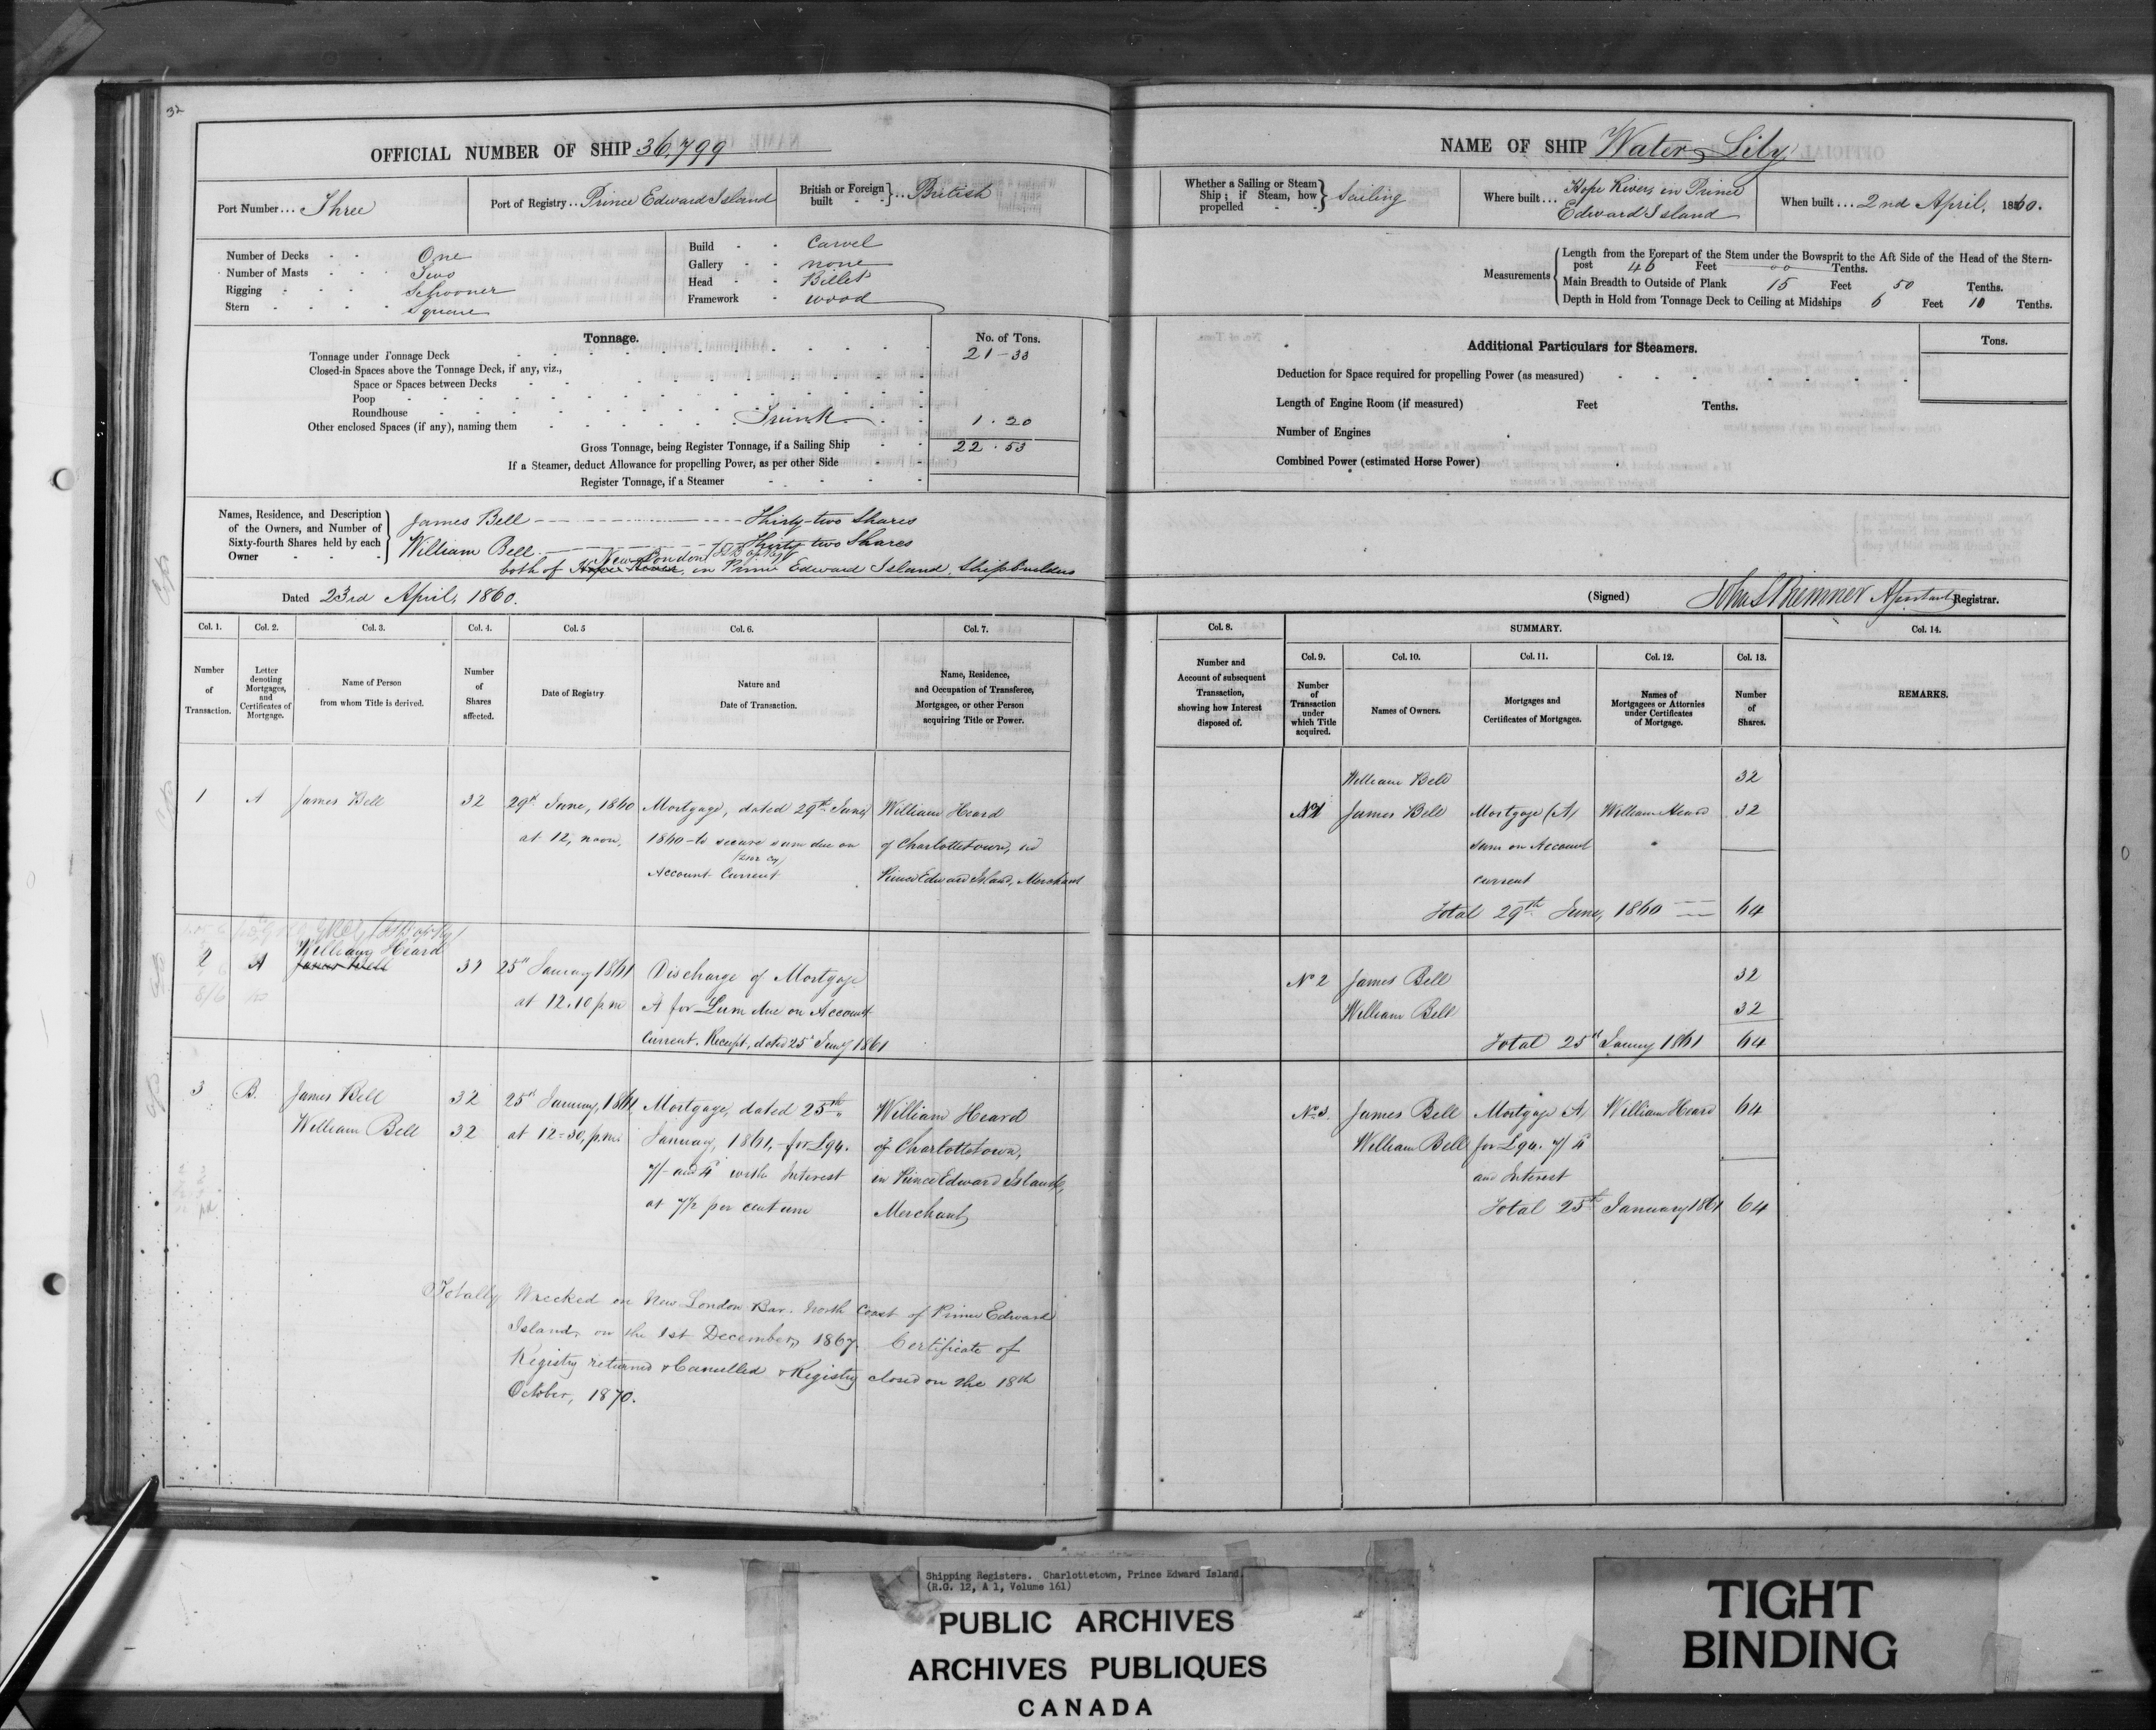 32
OFFICIAL NUMBER OF SHIP 36,799
Port Number... Three
Port of Registry.. Prince Edward Island
British or Foreign built } ... British
Number of Decks - - One
Number of Masts - - Two
Rigging - - Schooner
Stern - - Square
Build - - Carvel
Gallery - - none
Head - - Billet
Framework - wood
Tonnage.
No. of Tons.
Tonnage under Tonnage Deck 21-33
Closed-in Spaces above the Tonnage Deck, if any, viz.,
Space or Spaces between Decks
Poop
Roundhouse
Other enclosed Spaces (if any), naming them Trunk 1.20
Gross Tonnage, being Register Tonnage, if a Sailing Ship 22.53
If a Steamer, deduct Allowance for propelling Power, as per other Side
Register Tonnage, if a Steamer
Names, Residence, and Description of the Owners, and Number of Sixty-fourth Shares held by each Owner
James Bell Thirty-two Shares
William Bell Thirty-two Shares
New London
both of Hope River, in Prince Edward Island, Shipbuilders
Dated 23rd April, 1860.
Col. 1. Col. 2. Col. 3. Col. 4. Col. 5 Col. 6. Col. 7.
Number of Transaction.
Letter denoting Mortgages, and Certificates of Mortgage.
Name of Person from whom Title is derived.
Number of Shares affected.
Date of Registry
Nature and Date of Transaction.
Name, Residence, and Occupation of Transferee, Mortgagee, or other Person acquiring Title or Power.
1 A James Bell 32 29th June, 1860 Mortgage, dated 29th June William Heard
at 12, noon, 1860 - to secure sum due on of Charlottetown, in
Account Current Prince Edward Island, Merchant
William Heard
2 A James Bell 32 25th January 1861 Discharge of Mortgage
at 12.10 p.m A for Sum due on Account
Current. Receipt, dated 25th Jany 1861
3 B. James Bell 32 25th January, 1861 Mortgage, dated 25th William Heard
William Bell 32 at 12-30, p.m. January, 1861, for £94. of Charlottetown,
7/- and 4d with Interest in Prince Edward Island,
at 7½ per centum Merchant
Totally Wrecked on New London Bar. North Coast of Prince Edward
Island, on the 1st December, 1867. Certificate of
Registry returned & Cancelled & Registry closed on the 18th
October, 1870.
NAME OF SHIP Water Lily
Whether a Sailing or Steam Ship; if Steam, how propelled } Sailing
Where built... Hope River, in Prince
Edward Island
When built... 2nd April, 1860.
Measurements
Length from the Forepart of the Stem under the Bowsprit to the Aft Side of the Head of the Stern-
post 46 Feet 00 Tenths.
Main Breadth to Outside of Plank 15 Feet 50 Tenths.
Depth in Hold from Tonnage Deck to Ceiling at Midships 6 Feet 10 Tenths.
Additional Particulars for Steamers.
Tons.
Deduction for Space required for propelling Power (as measured)
Length of Engine Room (if measured) Feet Tenths.
Number of Engines
Combined Power (estimated Horse Power)
(Signed) Registrar.
Col. 8. SUMMARY. Col. 14.
Col. 9. Col. 10. Col. 11. Col. 12. Col. 13.
Number and Account of subsequent Transaction, showing how Interest disposed of.
Number of Transaction under which Title acquired.
Names of Owners.
Mortgages and Certificates of Mortgages.
Names of Mortgagees or Attornies under Certificates of Mortgage.
Number of Shares.
REMARKS.
William Bell 32
No 1 James Bell Mortgage (A) William Heard 32
Sum on Account
current
Total 29th June, 1860 64
No 2 James Bell 32
William Bell 32
Total 25th January 1861 64
No 3. James Bell Mortgage A William Heard 64
William Bell for £94. 7/ 4d
and Interest
Total 25th January 1861 64
Shipping Registers. Charlottetown, Prince Edward Island.
(R.G. 12, A 1, Volume 161)
PUBLIC ARCHIVES
ARCHIVES PUBLIQUES
CANADA
TIGHT
BINDING